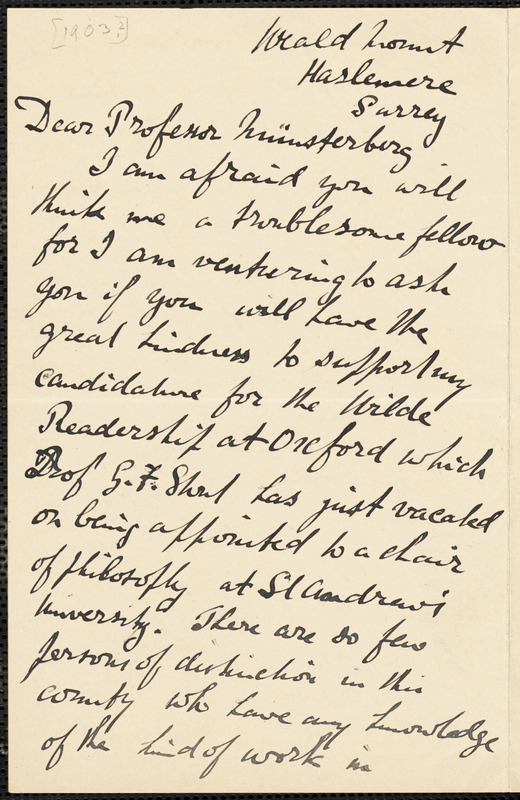 [1903?]
Weald Mount
Haslemere
Surrey
Dear Professor Münsterberg
I am afraid you will
think me a troublesome fellow
for I am venturing to ask
you if you will have the
great kindness to support my
candidature for the Wilde
Readership at Oxford which
Prof G.F. Stout has just vacated
on being appointed to a chair
of philosophy at St Andrew's
University. There are so few
persons of distinction in this
country who have any knowledge
of the kind of work in